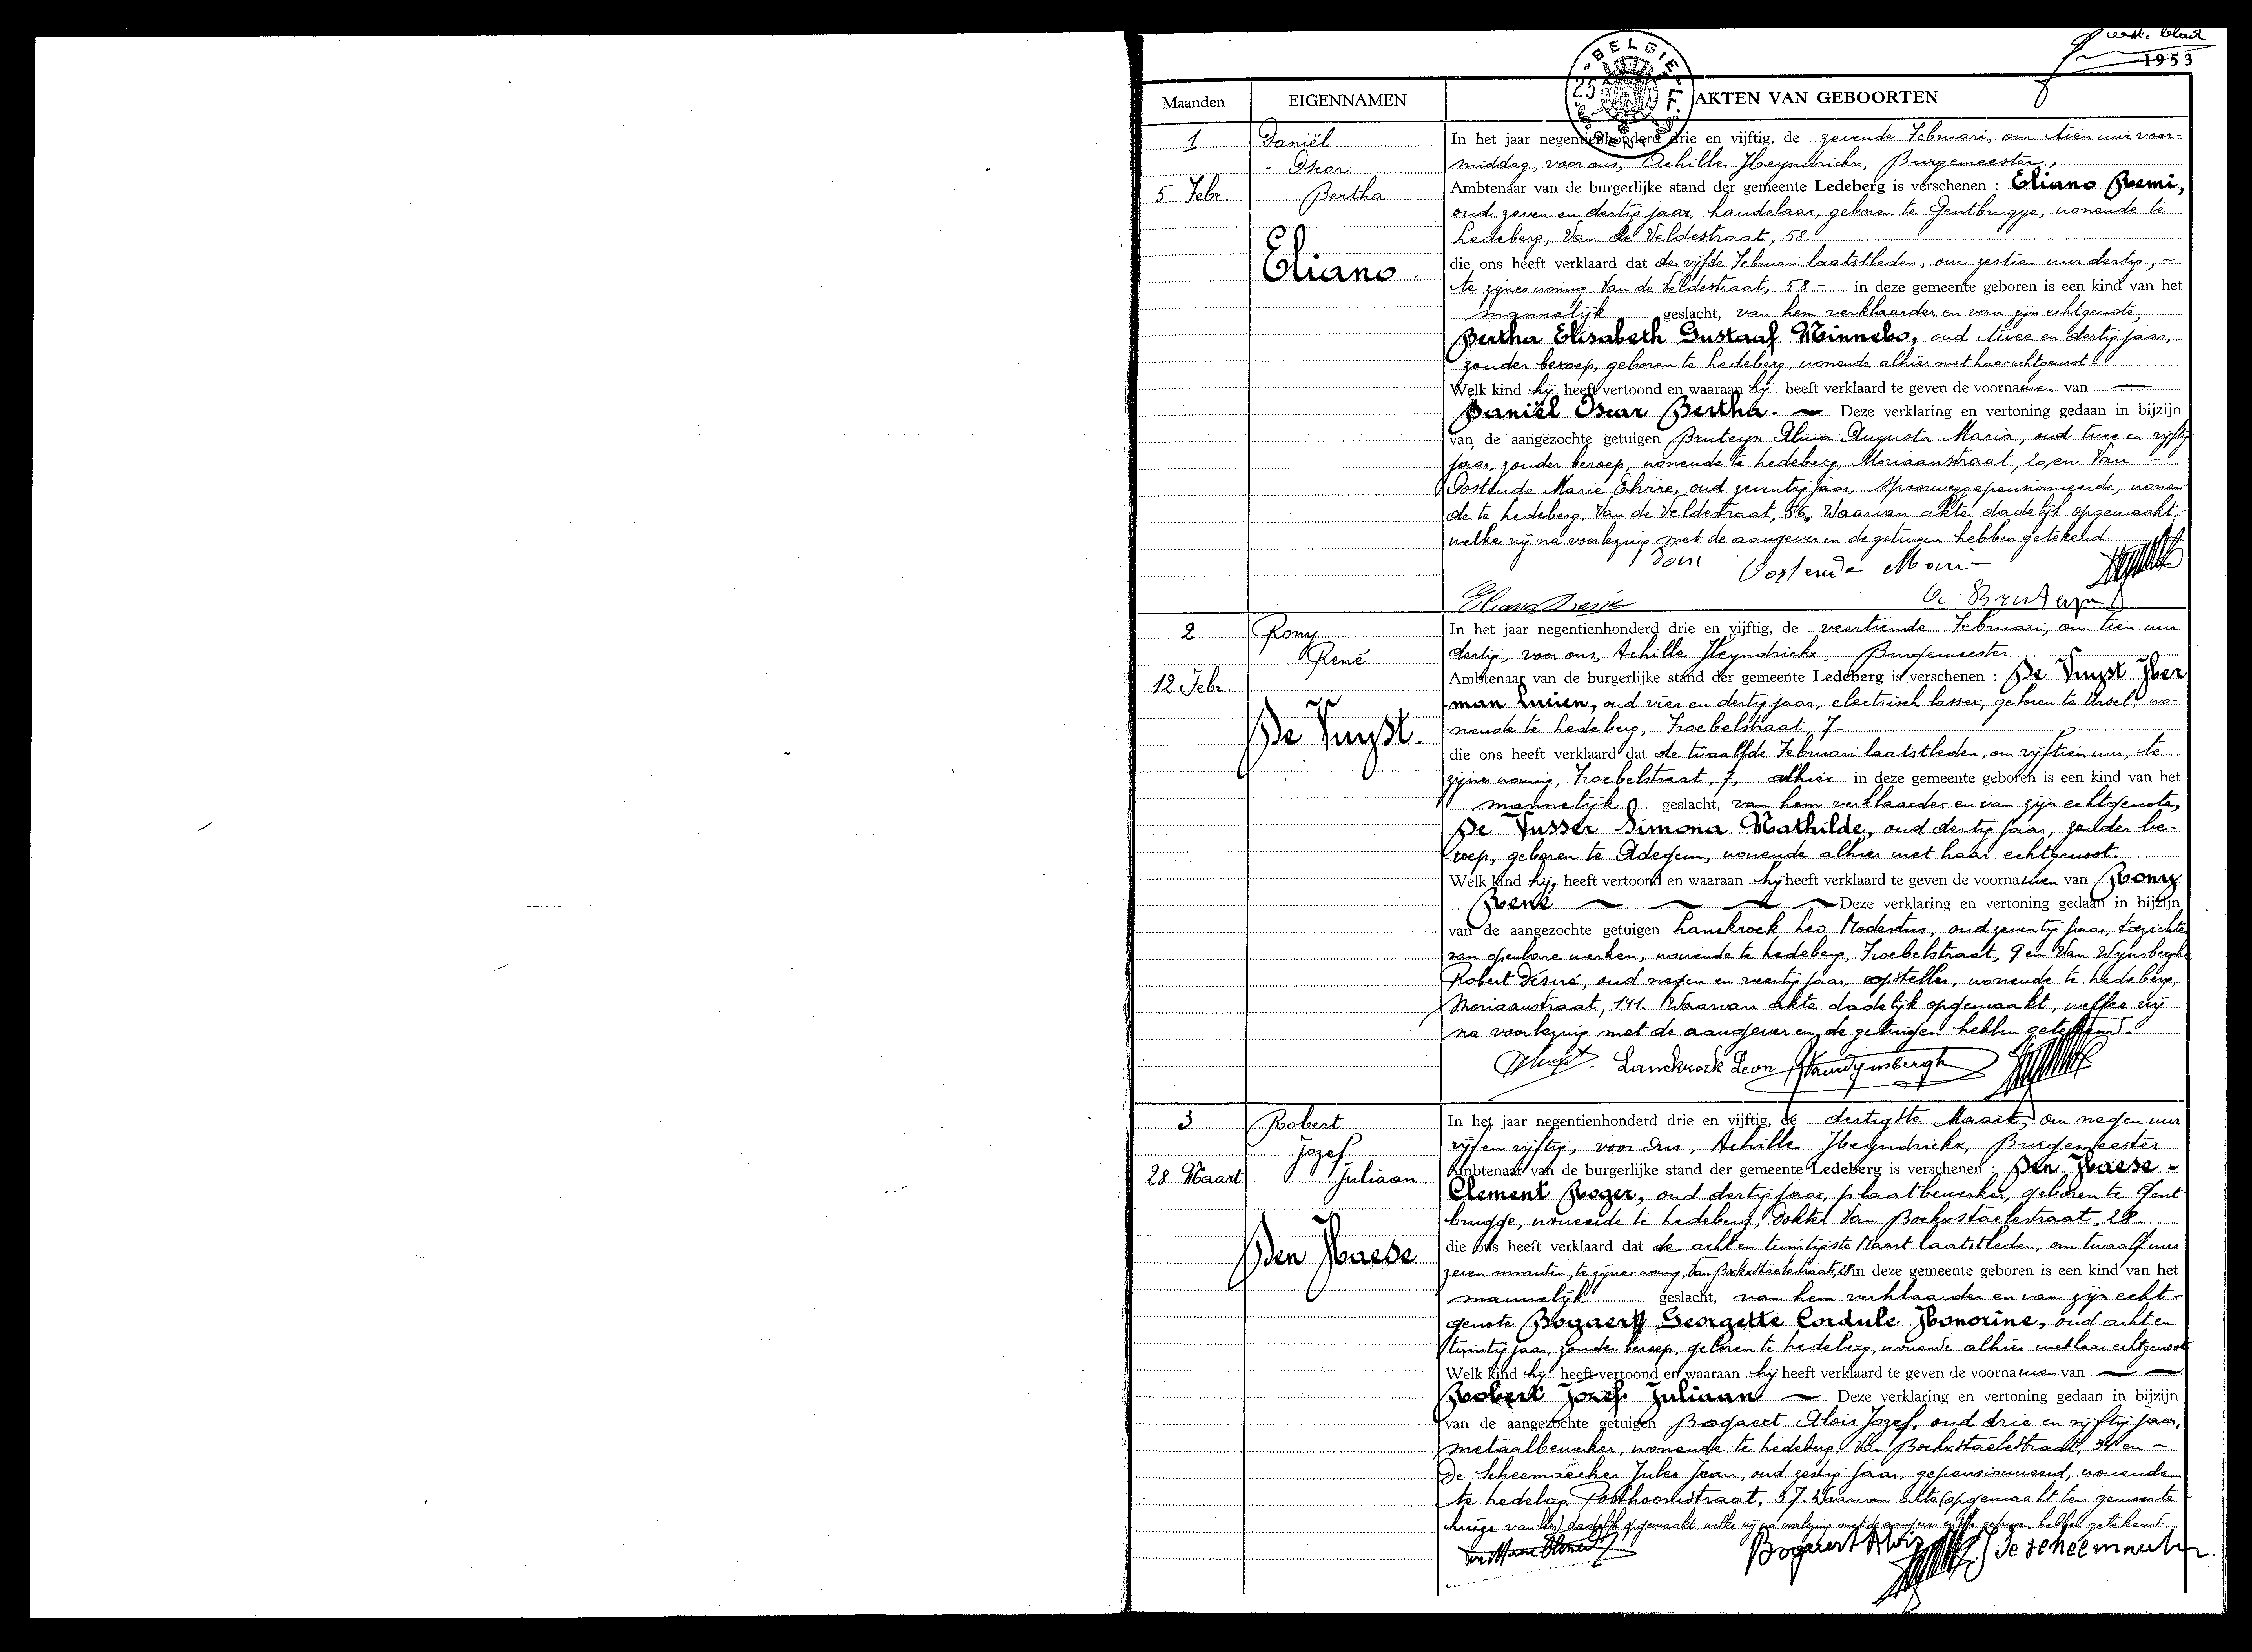 eerste blad
1953
BELGIE
25 F.
Maanden EIGENNAMEN AKTEN VAN GEBOORTEN
1
5 Febr.
Daniël
- Oscar
Bertha
Eliano.
In het jaar negentienhonderd drie en vijftig, de zevende Februari, om tien uur voor-
middag, voor ons, Achille Heyndrickx, Burgemeester,
Ambtenaar van de burgerlijke stand der gemeente Ledeberg is verschenen : Eliano Remi,
oud zeven en dertig jaar, handelaar, geboren te Gentbrugge, wonende te
Ledeberg, Van de Veldestraat, 58.
die ons heeft verklaard dat de vijfde Februari laatstleden, om zestien uur dertig, -
te zijner woning Van de Veldestraat, 58 - in deze gemeente geboren is een kind van het
mannelijk geslacht, van hem verklaarder en van zijn echtgenote,
Bertha Elisabeth Gustaaf Minnebo, oud twee en dertig jaar,
zonder beroep, geboren te Ledeberg, wonende alhier met haar echtgenoot.
Welk kind hij heeft vertoond en waaraan hij heeft verklaard te geven de voornamen van —
Daniël Oscar Bertha. — Deze verklaring en vertoning gedaan in bijzijn
van de aangezochte getuigen Bruteyn Alma Augusta Maria, oud twee en vijftig
jaar, zonder beroep, wonende te Ledeberg, Moriaanstraat, 20, en Van -
Oostende Marie Elvire, oud zeventig jaar, spoorweggepensionneerde, wonen-
de te Ledeberg, Van de Veldestraat, 56. Waarvan akte dadelijk opgemaakt,
welke wij na voorlezing met de aangever en de getuigen hebben getekend.
Oostende Mari
A. Bruteyn
2
12 Febr.
Rony
René
De Vuyst.
In het jaar negentienhonderd drie en vijftig, de veertiende Februari, om tien uur
dertig, voor ons, Achille Heyndrickx, Burgemeester
Ambtenaar van de burgerlijke stand der gemeente Ledeberg is verschenen : De Vuyst Her
man Lucien, oud vier en dertig jaar, electrisch lasser, geboren te Ursel, wo-
nende te Ledeberg, Froebelstraat, 7.
die ons heeft verklaard dat de twaalfde Februari laatstleden, om vijftien uur, te
zijner woning, Froebelstraat, 7, alhier in deze gemeente geboren is een kind van het
mannelijk geslacht, van hem verklaarder en van zijn echtgenote,
De Vusser Simona Mathilde, oud dertig jaar, zonder be-
roep, geboren te Adegem, wonende alhier met haar echtgenoot.
Welk kind hij heeft vertoond en waaraan hij heeft verklaard te geven de voornamen van Rony
René — Deze verklaring en vertoning gedaan in bijzijn
van de aangezochte getuigen Lanckrock Leo Modestus, oud zeventig jaar, toezichter
van openbare werken, wonende te Ledeberg, Froebelstraat, 9 en Van Wynsberghe
Robert Désiré, oud negen en veertig jaar, opsteller, wonende te Ledeberg,
Moriaanstraat, 141. Waarvan akte dadelijk opgemaakt, welke wij
na voorlezing met de aangever en de getuigen hebben getekend.
Lanckrock Leon Vanwynsbergh
3
28 Maart
Robert
Jozef
Juliaan
Den Haese
In het jaar negentienhonderd drie en vijftig, de dertigste Maart, om negen uur
vijf en vijftig, voor ons, Achille Heyndrickx, Burgemeester
Ambtenaar van de burgerlijke stand der gemeente Ledeberg is verschenen : Den Haese -
Clement Roger, oud dertig jaar, plaatbewerker, geboren te Gent
brugge, wonende te Ledeberg, Dokter Van Bockxstaelestraat, 28
die ons heeft verklaard dat de acht en twintigste Maart laatstleden, om twaalf uur
zeven minuten, te zijner woning, Van Bockxstaelestraat, 28 in deze gemeente geboren is een kind van het
mannelijk geslacht, van hem verklaarder en van zijn echt-
genote Bogaert Georgette Cordule Honorine, oud acht en
twintig jaar, zonder beroep, geboren te Ledeberg, wonende alhier met haar echtgenoot
Welk kind hij heeft vertoond en waaraan hij heeft verklaard te geven de voornamen van —
Robert Jozef Juliaan — Deze verklaring en vertoning gedaan in bijzijn
van de aangezochte getuigen Bogaert Alois Jozef, oud drie en vijftig jaar,
metaalbewerker, wonende te Ledeberg, Van Bockxstaelestraat, en -
De Scheemaecker Jules Jean, oud zestig jaar, gepensionneerd, wonende
te Ledeberg, Posthoornstraat, 57. Waarvan akte (opgemaakt ten gemeente
huize van her) dadelijk opgemaakt, welke wij na voorlezing met de aangever en de getuigen hebben getekend.
Bogaert Aloiz De scheemaeker